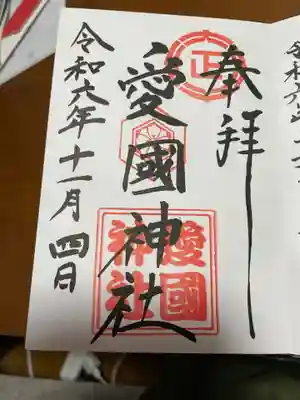 奉拝
正
愛國神社
愛國
神社
令和六年十一月四日
令和六年